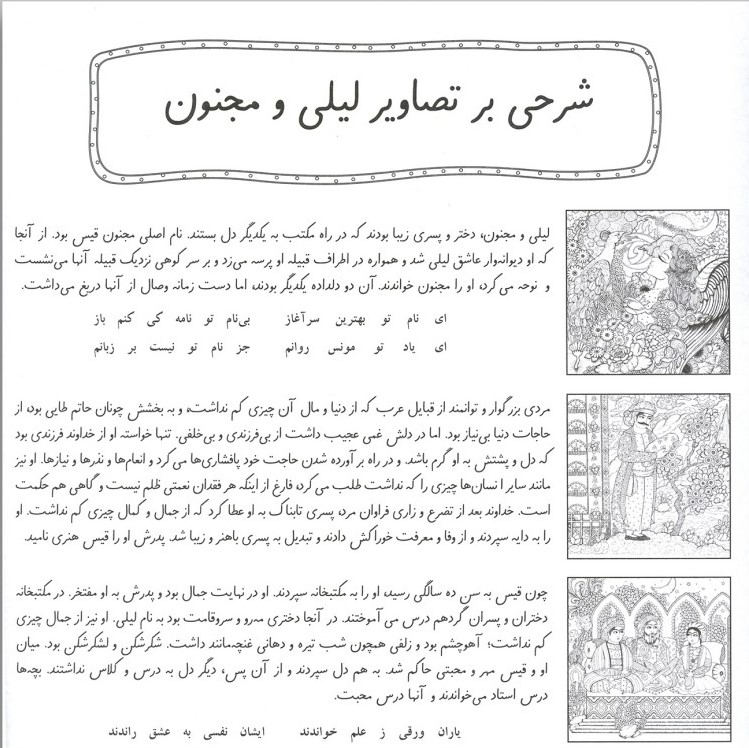 شرحی بر تصاویر لیلی و مجنون
لیلی و مجنون، دختر و پسری زیبا بودند که در راه مکتب به یکدیگر دل بستند. نام اصلی مجنون قیس بود. از آنجا
که او دیوانه‌وار عاشق لیلی شد و همواره در اطراف قبیله او پرسه می‌زد و بر سر کوهی نزدیک قبیله آنها می‌نشست
و نوحه می‌کرد، او را مجنون خواندند. آن دو دلداده یکدیگر بودند، اما دست زمانه وصال از آنها دریغ می‌داشت.
ای نام تو بهترین سرآغاز بی‌نام تو نامه کی کنم باز
ای یاد تو مونس روانم جز نام تو نیست بر زبانم
مردی بزرگوار و توانمند از قبایل عرب که از دنیا و مال آن چیزی کم نداشت، و به بخشش چونان حاتم طایی بود، از
حاجات دنیا بی‌نیاز بود. اما در دلش غمی عجیب داشت از بی‌فرزندی و بی‌خلفی. تنها خواسته او از خداوند فرزندی بود
که دل و پشتش به او گرم باشد. و در راه برآورده شدن حاجت خود پافشاری‌ها می‌کرد و انعام‌ها و نذرها و نیازها. او نیز
مانند سایر انسان‌ها چیزی را که نداشت طلب می‌کرد، فارغ از اینکه هر فقدان نعمتی ظلم نیست و گاهی هم حکمت
است. خداوند بعد از تضرع و زاری فراوان مرد، پسری تابناک به او عطا کرد که از جمال و کمال چیزی کم نداشت. او
را به دایه سپردند و از وفا و معرفت خوراکش دادند و تبدیل به پسری باهنر و زیبا شد. پدرش او را قیس هنری نامید.
چون قیس به سن ده سالگی رسید، او را به مکتبخانه سپردند. او در نهایت جمال بود و پدرش به او مفتخر. در مکتبخانه
دختران و پسران گردهم درس می‌آموختند. در آنجا دختری مه‌رو و سروقامت بود به نام لیلی. او نیز از جمال چیزی
کم نداشت؛ آهوچشم بود و زلفی همچون شب تیره و دهانی غنچه‌مانند داشت. شکرشکن و لشکرشکن بود. میان
او و قیس مهر و محبتی حاکم شد. به هم دل سپردند و از آن پس، دیگر دل به درس و کلاس نداشتند. بچه‌ها
درس استاد می‌خواندند و آنها درس محبت.
یاران ورقی ز علم خواندند ایشان نفسی به عشق راندند